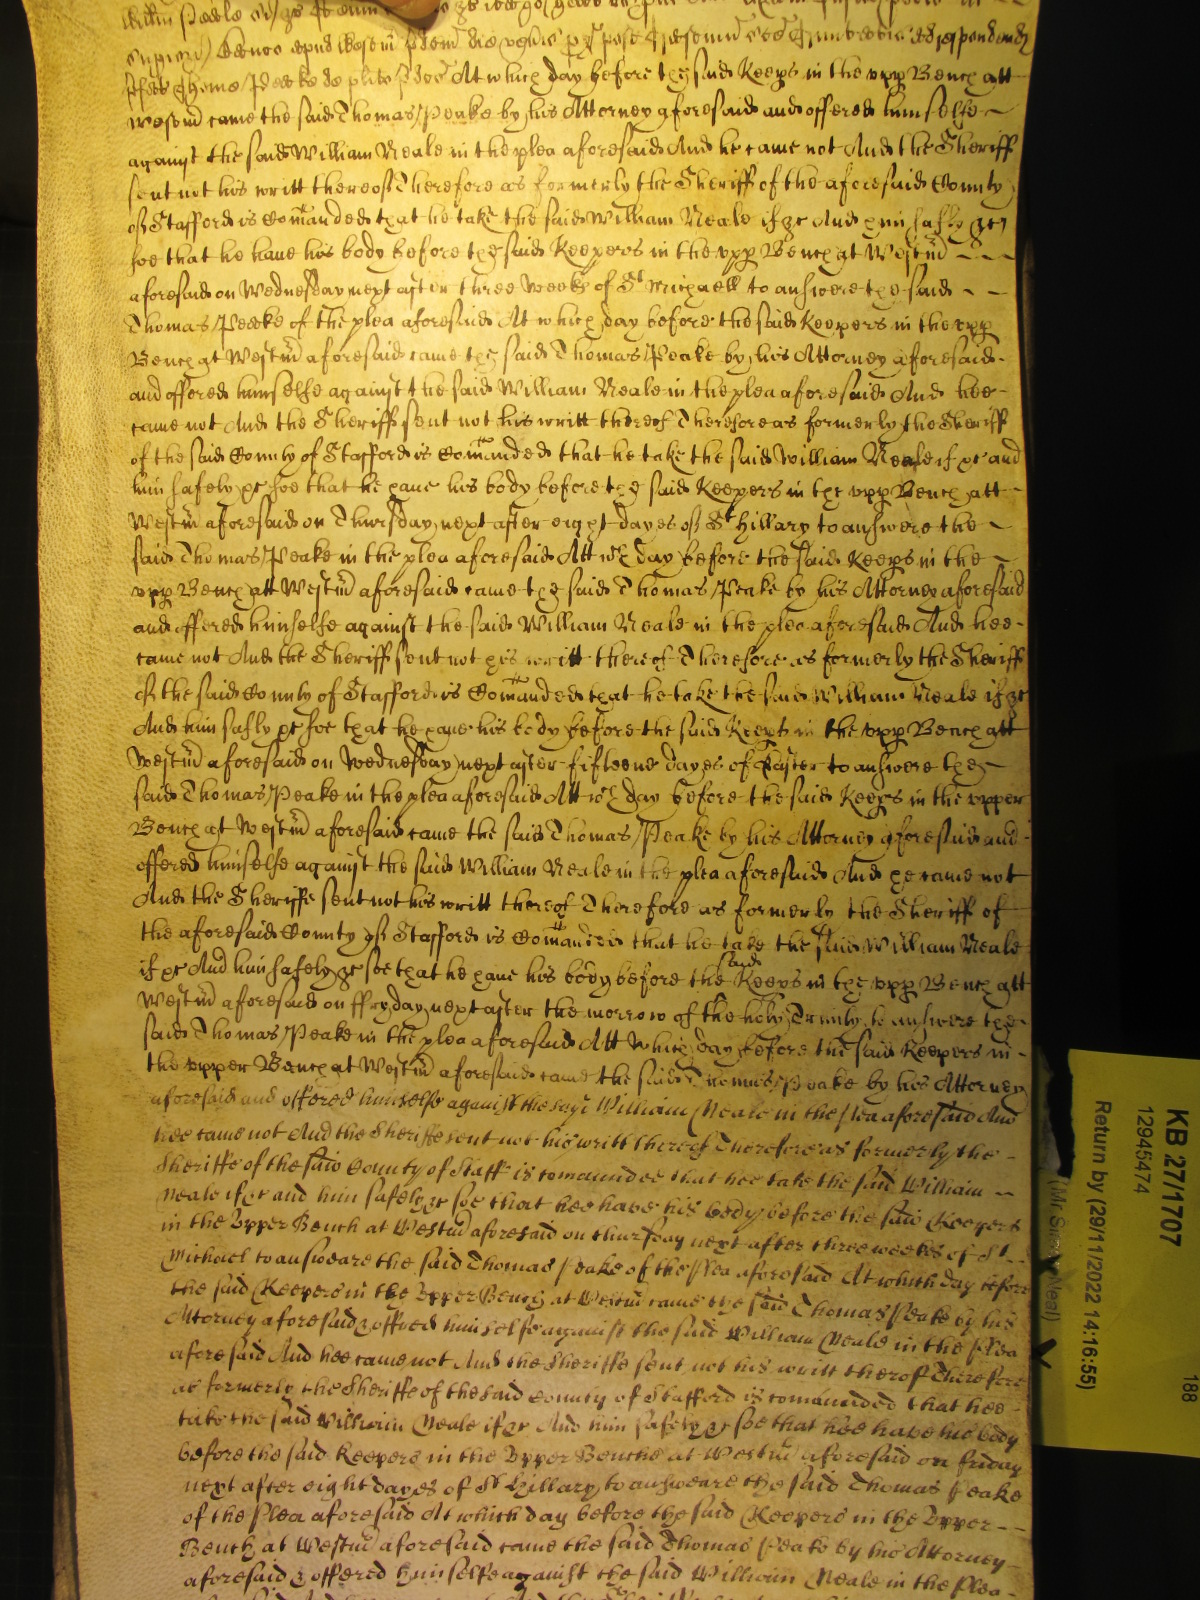 Thome Peake de plito pdco At which day before the said Keeps in the vpp Bench att
Westm came the said Thomas Peake by his Attorney aforesaid and offered himselfe
against the said William Neale in the plea aforesaid And he came not And the Sheriff
sent not his writt thereof Therefore as formerly the Sheriff of the aforesaid County
of Stafford is Comanded that he take the said William Neale if &c And him safly &c
soe that he haue his body before the said Keepers in the vpp Bench at Westm
aforesaid on Wednesday next after three weeks of St Michaell to answere the said
Thomas Peake of the plea aforesaid At which day before the said Keepers in the vpp
Bench at Westm aforesaid came the said Thomas Peake by his Attorney aforesaid
and offered himselfe against the said William Neale in the plea aforesaid And hee
came not And the Sheriff sent not his writt thereof Therefore as formerly the Sheriff
of the said County of Stafford is Comanded that he take the said William Neale if &c and
him safely &c soe that he haue his body before the said Keepers in the vpp Bench att
Westm aforesaid on Thursday next after eight dayes of St Hillary to answere the
said Thomas Peake in the plea aforesaid Att wch day before the said Keeps in the
vpp Bench att Westm aforesaid came the said Thomas Peake by his Attorney aforesaid
and offered himselfe against the said William Neale in the plea aforesaid And hee
came not And the Sheriff sent not his writt thereof Therefore as formerly the Sheriff
of the said County of Stafford is Comanded that he take the said William Neale if &c
And him safly &c soe that he haue his body before the said Keeps in the vpp Bench att
Westm aforesaid on Wednesday next after fifteene dayes of Easter to answere the
said Thomas Peake in the plea aforesaid Att wch day before the said Keeps in the vpper
Bench at Westm aforesaid came the said Thomas Peake by his Attorney aforesaid and
offered himselfe against the said William Neale in the plea aforesaid And he came not
And the Sheriffe sent not his writt thereof Therefore as formerly the Sheriff of
the aforesaid County of Stafford is Comanded that he take the said William Neale
if &c And him safely &c soe that he haue his body before the said Keeps in the vpp Bench att
Westm aforesaid on ffryday next after the morrow of the holy Trinity to answere the
said Thomas Peake in the plea aforesaid Att which day before the said Keepers in
the vpper Bench at Westm aforesaid came the said Thomas Peake by his Attorney
aforesaid and offered himselfe against the said William Neale in the plea aforesaid And
hee came not And the Sheriffe sent not his writt thereof Therefore as formerly the
Sheriffe of the said County of Staff is comaunded that hee take the said William
Neale if &c and him safely &c soe that hee have his body before the said Keepers
in the Vpper Bench at Westm aforesaid on thursday next after three weekes of St
Michael to answeare the said Thomas Peake of the Plea aforesaid At which day before
the said Keepers in the Vpper Bench at Westm came the said Thomas Peake by his
Attorney aforesaid & offered himselfe against the said William Neale in the Plea
aforesaid And hee came not And the Sheriffe sent not his writt therof Therefore
as formerly the Sheriffe of the said County of Stafford is comaunded that hee
take the said William Neale if &c And him safely &c soe that hee have his body
before the said Keepers in the Vpper Benche at Westm aforesaid on friday
next after eight dayes of St Hillary to answeare the said Thomas Peake
of the Plea aforesaid At which day before the said Keepers in the Vpper
Bench at Westm aforesaid came the said Thomas Peake by his Attorney
aforesaid & offered himselfe against the said William Neale in the Plea
KB 27/1707
12945474
Return by (29/11/2022 14:16:55)
188